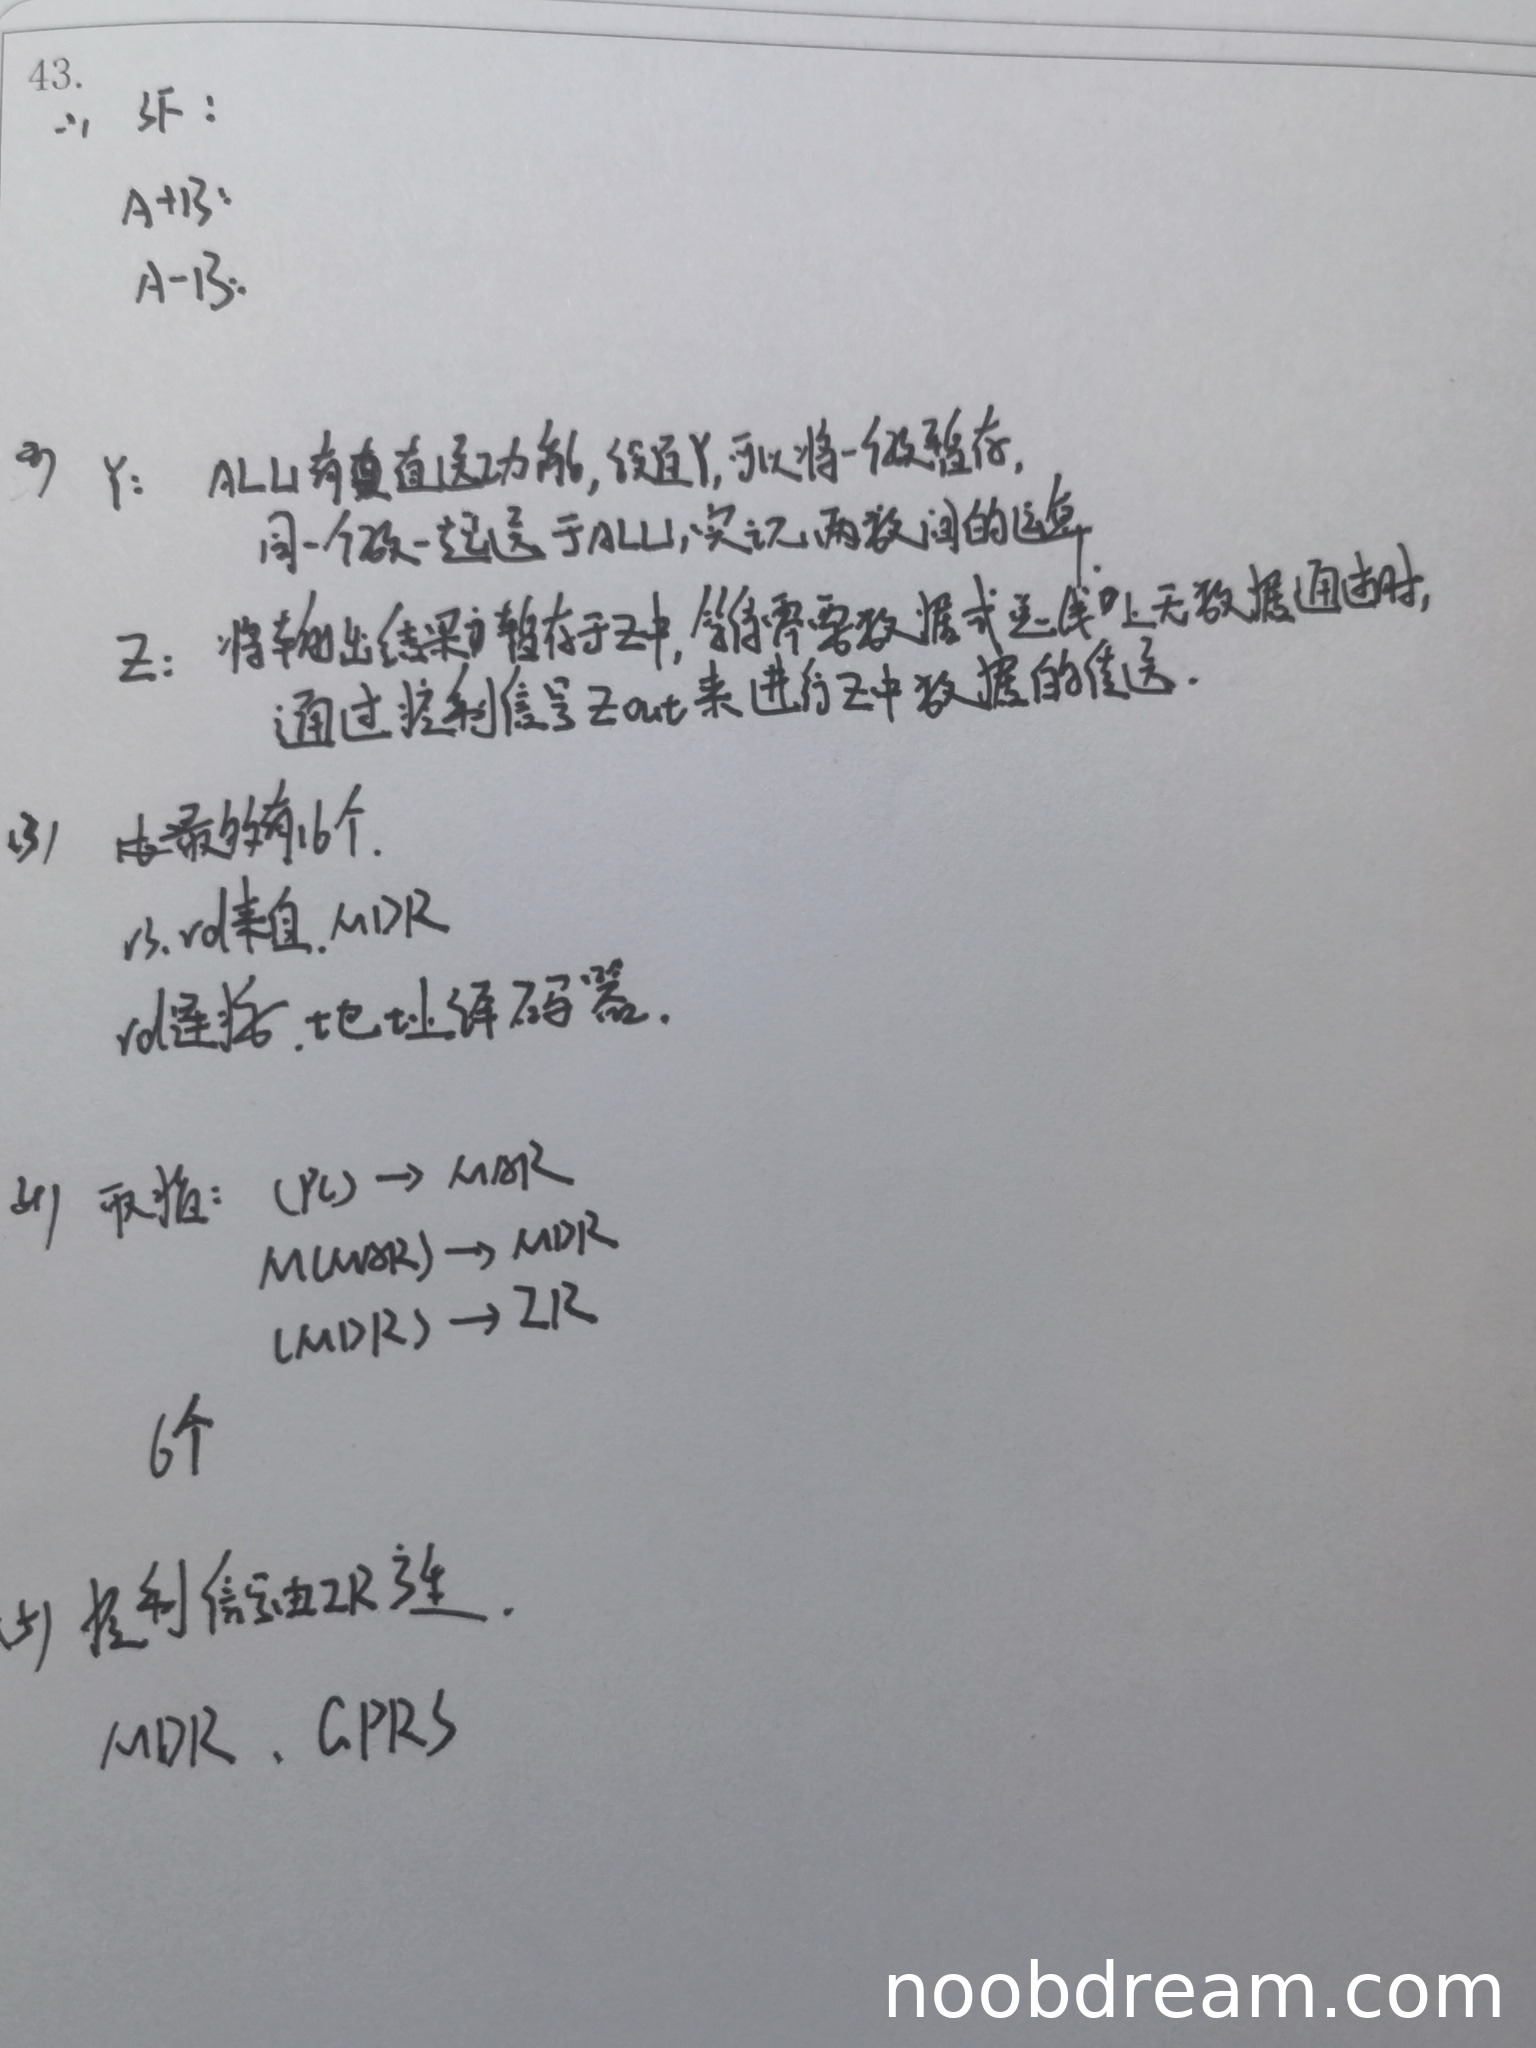 43.
(1) SF:
A+B:
A-B:
(2) Y: ALU有直送功能,设置Y,可以将一个数暂存,
同一个数一起送于ALU,实现两数间的运算.
Z: 将输出结果暂存于Z中,等待需要数据或总线上无数据通过时,
通过控制信号Zout来进行Z中数据的传送.
(3) 最多有16个.
rs、rd来自.MDR
rd连接.地址译码器.
(4) 取指: (PC) → MAR
M(MAR) → MDR
(MDR) → IR
6个
(5) 控制信号由IR产生.
MDR、GPRS
noobdream.com